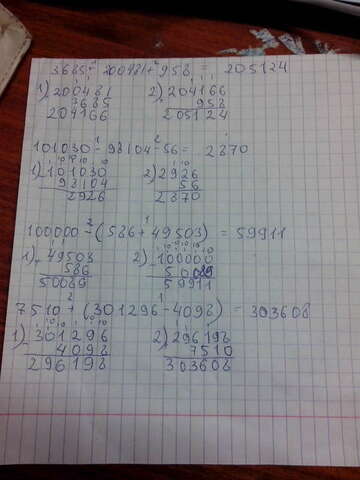 3685+200481+958 = 205124
1) 200481 2) 204166
7685 958
204166 205124
101030-98104-56= 2870
1) 101030 2) 2926
98104 56
2926 2870
100000-(586+49503) = 59911
1) 49503 2) 100000
586 50089
50089 59911
7510+(301296-4098) = 303608
1) 301296 2) 296198
4098 7510
296198 303608